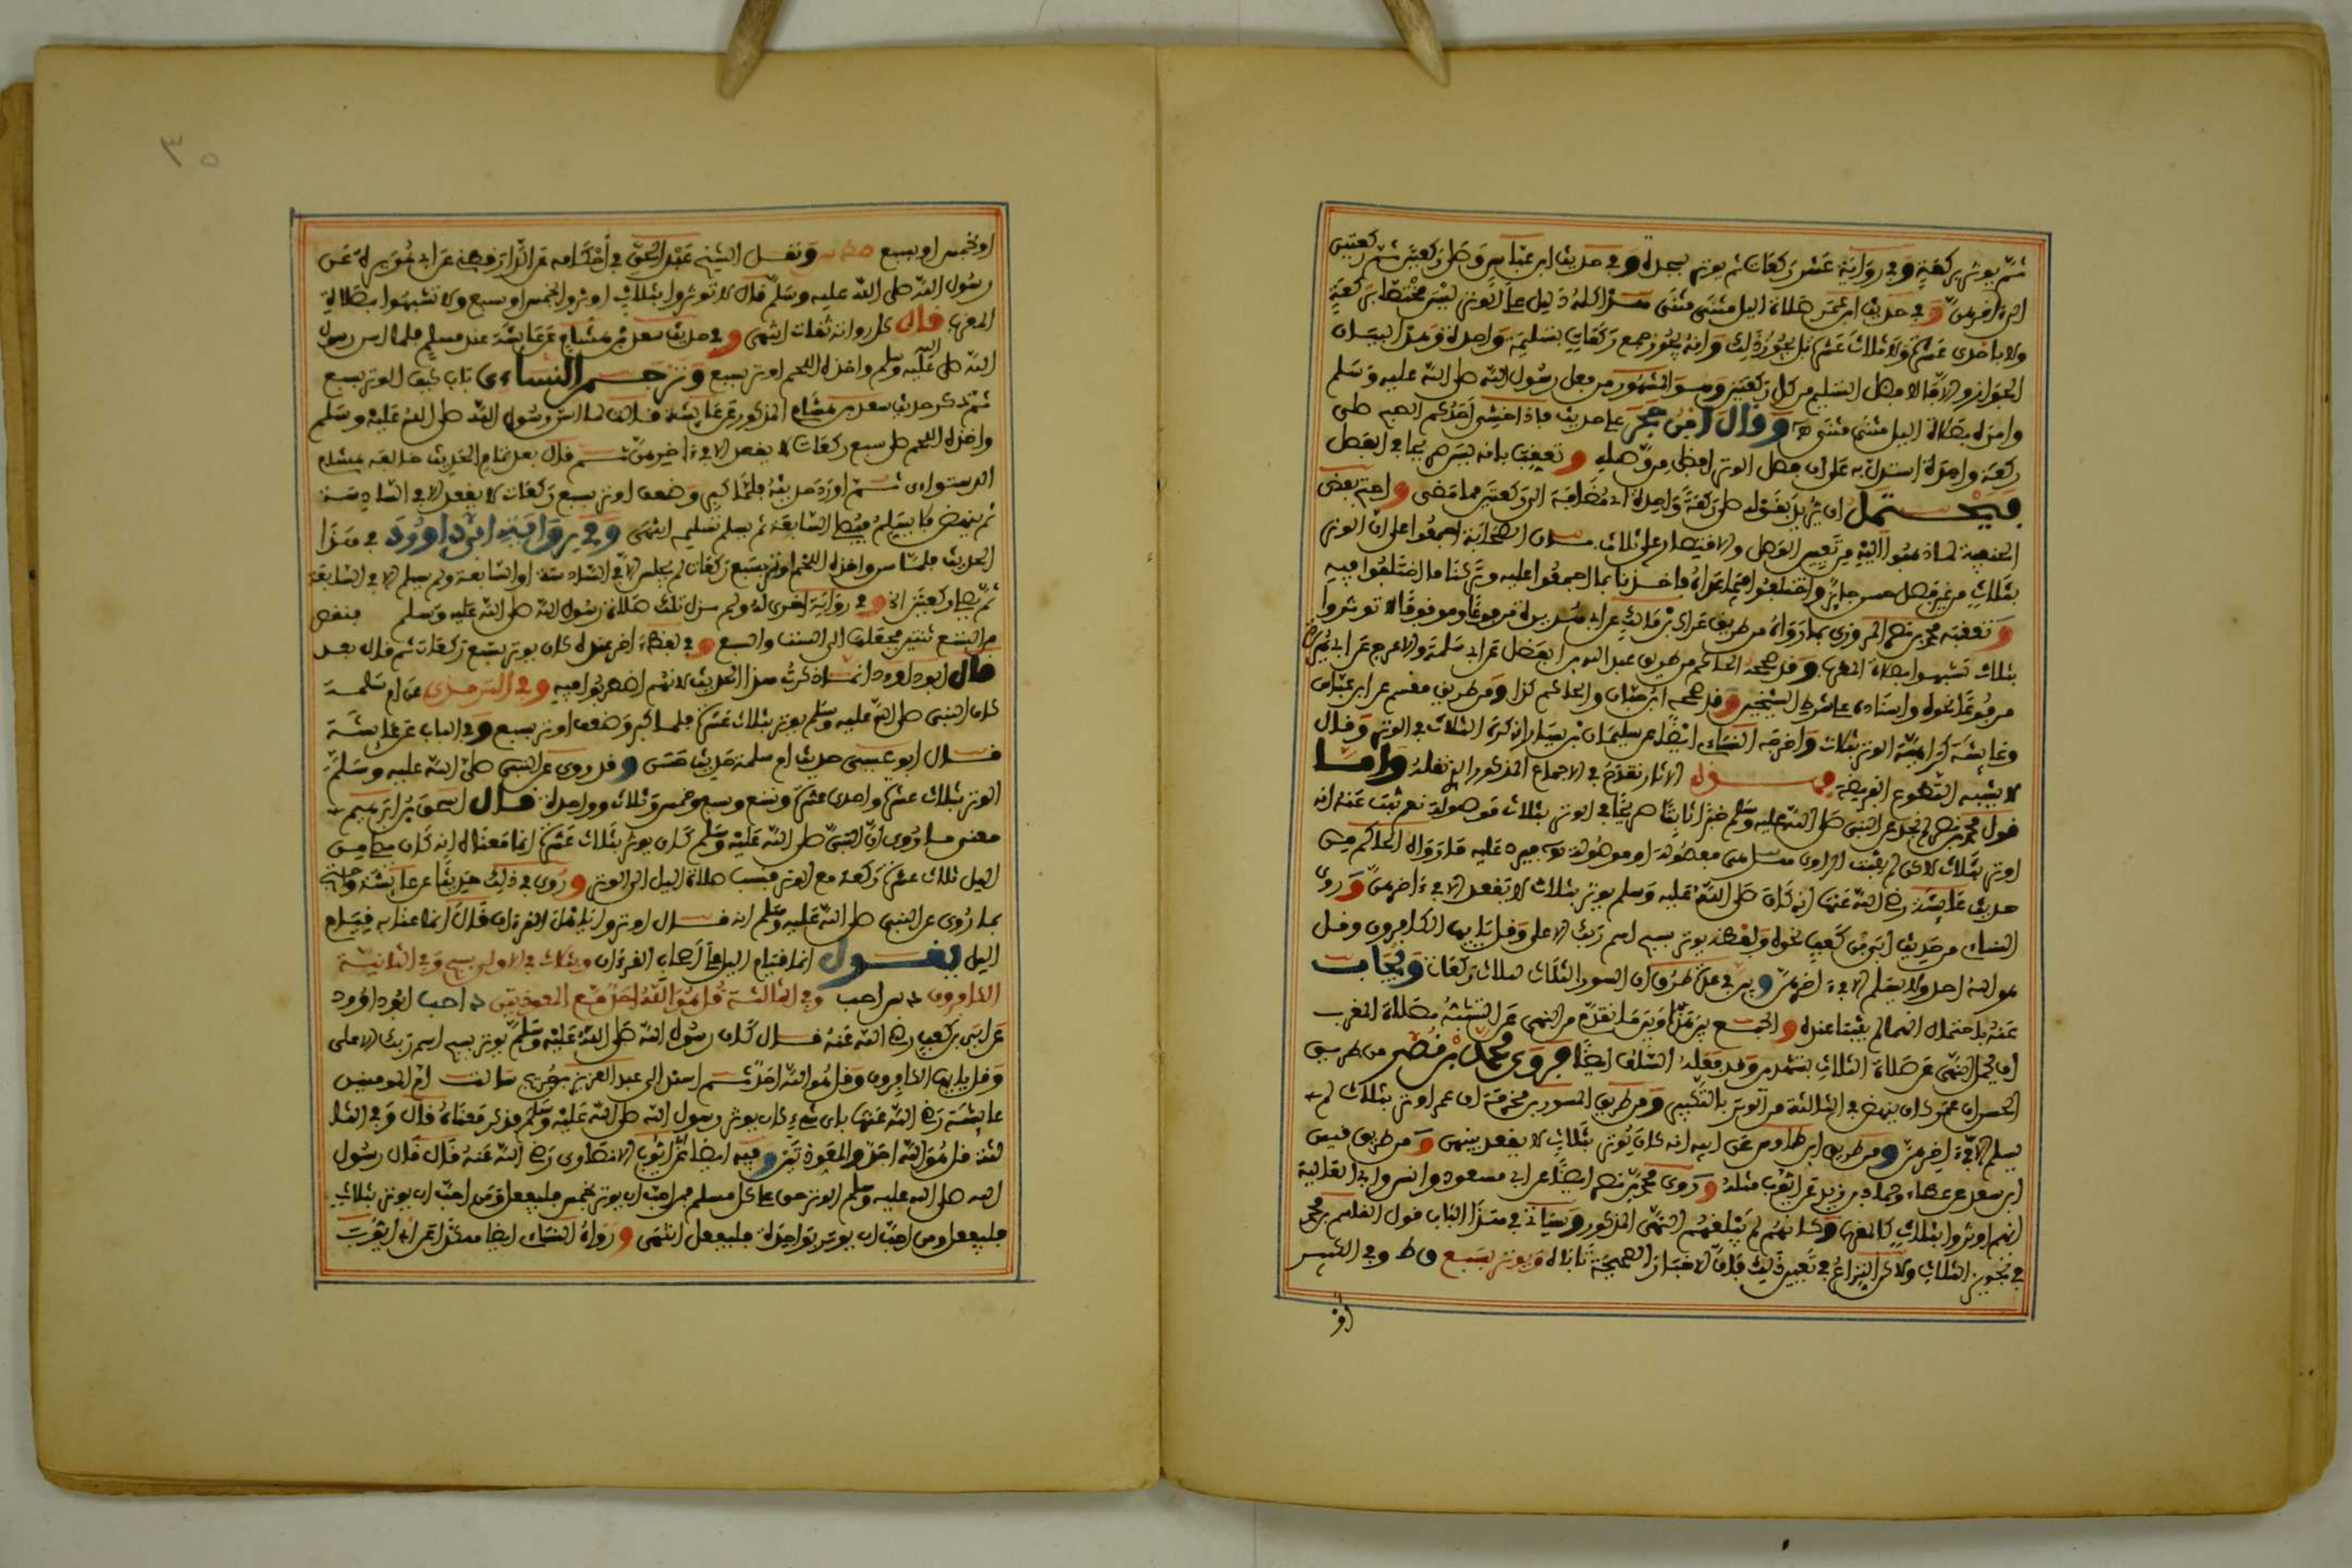 ثم يوتر بركعة وفي رواية عشر ركعات ثم يوتر بسجدة وفي حديث ابن عباس وصلى ركعتين ثم ركعتين
وفي حديث ابن عمر صلاة اليل مثنى مثنى هذا كله دليل على الوتر ليس مختصا بركعة
ولا باحدى عشرة ولا ثلاث عشرة بل يجوز ذلك وانه يجوز جمع ركعات بتسليمة واحدة وهذا لبيان
الجواز والا فالافضل التسليم من كل ركعتين وهو المشهور من فعل رسول الله صلى الله عليه وسلم
وامره بصلاة اليل مثنى مثنى وقال ابن حجر على حديث فاذا خشي احدكم الصبح صلى
ركعة واحدة استدل به على ان فصل الوتر افضل من وصله وتعقب بانه ليس صريحا في الفصل
فيحتمل ان يريد بقوله صلى ركعة واحدة اي مضافة الى ركعتين مما مضى واحتج بعض
الحنفية لما ذهبوا اليه من تعيين الوصل والاقتصار على ثلاث بان الصحابة اجمعوا على ان الوتر
بثلاث من غير فصل حسن جايز واختلفوا فيما عداه فاخذنا بما اجمعوا عليه وتركنا ما اختلفوا فيه
وتعقبه محمد بن نصر المروزي بما رواه من طريق عراك بن مالك عن ابي هريرة مرفوعا وموقوفا لا توتروا
بثلاث تشبهوا بصلاة المغرب وقد صححه الحاكم من طريق عبد الله بن الفضل عن ابي سلمة والاعرج عن ابي هريرة
مرفوعا نحوه واسناده على شرط الشيخين وقد صححه ابن حبان والحاكم كذا ومن طريق مقسم عن ابن عباس
وعايشة كراهية الوتر بثلاث واخرجه النساي ايضا عن سليمان بن يسار انه كره الثلاث في الوتر وقال
لا يشبه التطوع الفريضة فهذه الاثار تقدح في الاجماع المذكور الذي نقله واما
قول محمد بن نصر لم نجد عن النبي صلى الله عليه وسلم خبرا ثابتا صريحا في الوتر بثلاث موصولة نعم ثبت عنه انه
اوتر بثلاث لاكن لم يثبت الراوي هل هي مفصولة او موصولة فيرد عليه ما رواه الحاكم من
حديث عايشة رضي الله عنها انه كان صلى الله عليه وسلم يوتر بثلاث لا يفعد الا في اخرهن وروى
النساي من حديث ابي بن كعب نحوه ولفظه يوتر بسبح اسم ربك الاعلى وقل يايها الكافرون وقل
هو الله احد ولا يسلم الا في اخرهن وبين في عدة طرق ان السور الثلاث لثلاث ركعات ويجاب
عنه باحتمال انهما لم يثبتا عنده والجمع بين هذا وبين ما تقدم من النهي عن التشبه بصلاة المغرب
ان يحمل النهي عن صلاة الثلاث بتشهدين وقد فعله السلف ايضا فروى محمد بن نصر من طريق
الحسن ان عمر كان ينهض في الثالثة من الوتر بالتكبير ومن طريق المسور بن مخرمة ان عمر اوتر بثلاث لم
يسلم الا في اخرهن ومن طريق ابن طاوس عن ابيه انه كان يوتر بثلاث لا يفعد بينهن ومن طريق قيس
ابن سعد عن عطاء وحماد بن زيد عن ايوب مثله وروى محمد بن نصر ايضا عن ابن مسعود وانس وابي العالية
انهم اوتروا بثلاث كالمغرب وكانهم لم يبلغهم النهي المذكور وسياتي في هذا الباب قول القاسم بن محمد
في تجويز الثلاث ولاكن النزاع في تعيين ذلك فان الاخبار الصحيحة تاباه ويوتر بسبع وفي الكبير
او
٣٥
او بخمس او بسبع ونقل الشيخ عبد الحق في احكامه عن الدارقطني عن ابي هريرة عن
رسول الله صلى الله عليه وسلم قال لا توتروا بثلاث اوتروا بخمس او سبع ولا تشبهوا بصلاة
المغرب قال كل رواته ثقات انتهى وفي حديث سعد بن هشام عن عايشة عند مسلم فلما اسن رسول
الله صلى الله عليه وسلم واخذه اللحم اوتر بسبع وترجم النساءي باب كيف الوتر بسبع
ثم ذكر حديث سعد بن هشام المذكور عن عايشة قالت لما اسن رسول الله صلى الله عليه وسلم
واخذه اللحم صلى سبع ركعات لا يفعد الا في اخرهن ثم قال بعد تمام الحديث خالفه هشام
الدستواءي ثم اورد حديثه فلما كبر وضعف اوتر بسبع ركعات لا يفعد الا في السادسة
ثم ينهض ولا يسلم فيصلي السابعة ثم يسلم تسليمة انتهى وفي رواية ابي داوود في هذا
الحديث فلما اسن واخذه اللحم اوتر بسبع ركعات لم يجلس الا في السادسة والسابعة ولم يسلم الا في السابعة
ثم يصلي ركعتين الخ وفي رواية اخرى له ولم تزل تلك صلاة رسول الله صلى الله عليه وسلم فنقص
من التسع ثنتين فجعلها الى الست والسبع وفي لفظ اخر عنده كان يوتر بتسع ركعات ثم قال بعد
قال ابو داوود انما ذكرت هذا الحديث لانهم اضطربوا فيه وفي الترمذي عن ام سلمة
كان النبي صلى الله عليه وسلم يوتر بثلاث عشرة فلما كبر وضعف اوتر بسبع وفي الباب عن عايشة
قال ابو عيسى حديث ام سلمة حديث حسن وقد روي عن النبي صلى الله عليه وسلم
الوتر بثلاث عشرة واحدى عشرة وتسع وسبع وخمس وثلاث وواحدة قال اسحق بن ابراهيم
معنى ما روي ان النبي صلى الله عليه وسلم كان يوتر بثلاث عشرة انما معناه انه كان يصلي من
اليل ثلاث عشرة ركعة مع الوتر فنسبت صلاة اليل الى الوتر وروى في ذلك حديثا عن عايشة واحتج
بما روي عن النبي صلى الله عليه وسلم انه قال اوتروا يا اهل القرءان قال انما عنى به قيام
اليل يقول انما قيام اليل على اصحاب القرءان وبثلاث في الاولى بسبح وفي الثانية
الكافرون وفي الثالثة قل هو الله احد مع المعوذتين ابو داوود
عن ابي بن كعب رضي الله عنه قال كان رسول الله صلى الله عليه وسلم يوتر بسبح اسم ربك الاعلى
وقل يايها الكافرون وقل هو الله احد ثم اسند الى عبد العزيز بن جريج سالت ام المومنين
عايشة رضي الله عنها باي شيء كان يوتر رسول الله صلى الله عليه وسلم فذكر معناه قال وفي الثا
لثة قل هو الله احد والمعوذتين وفيه ايضا عن ابي ايوب الانصاري رضي الله عنه قال قال رسول
الله صلى الله عليه وسلم الوتر حق على كل مسلم فمن احب ان يوتر بخمس فليفعل ومن احب ان يوتر بثلاث
فليفعل ومن احب ان يوتر بواحدة فليفعل انتهى ورواه النساي ايضا هكذا عن ابي ايوب